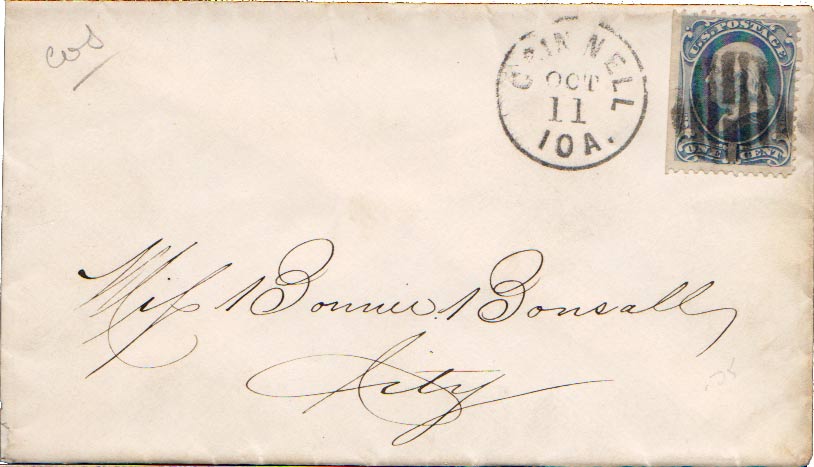 GRINNELL
OCT
11
IOA.
U.S. POSTAGE
ONE CENT
Miss Bonnie Bonsall
City